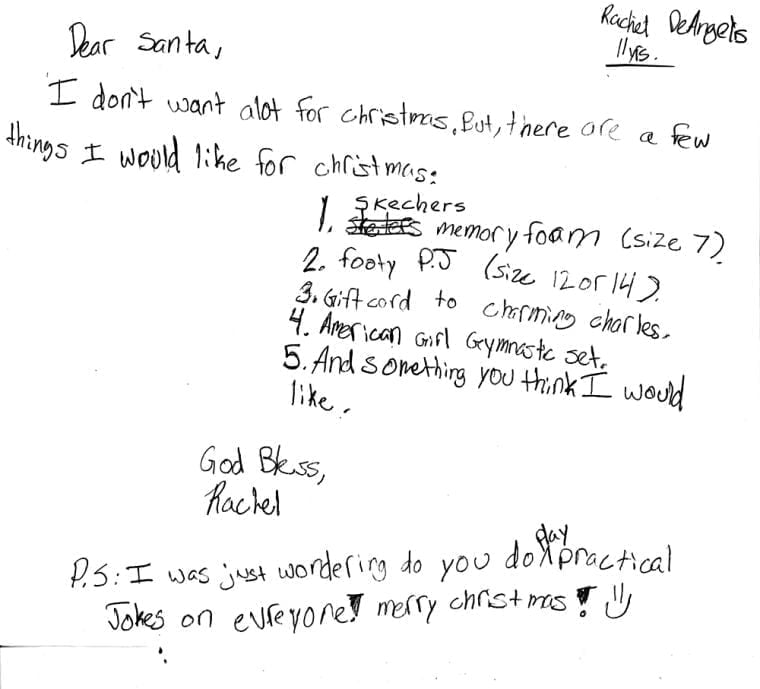 Rachel DeAngelis
11yrs.
Dear Santa,
I don't want alot for christmas. But, there are a few
things I would like for christmas:
1. Skechers memory foam (size 7).
2. footy P.J (size 12 or 14).
3. Gift card to charming charles.
4. American Girl Gymnastc set.
5. And something you think I would
like.
God Bless,
Rachel
P.S: I was just wondering do you do play practical
Jokes on evreyone! merry christmas! :)